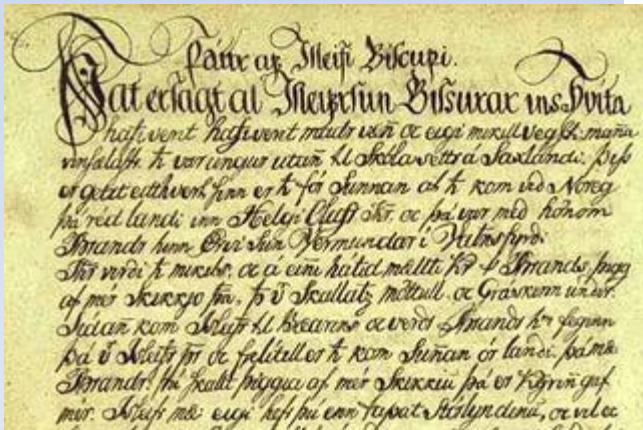 Þáttr af Isleifi Biscupi.
Þat er sagt at Isleifr sun Gissurar ins Hvita
hafi vent hafi vent madr veñ oc eigi mikill veg
vinsælasti ħ var ungur utañ til Skóla settr á Saxlandi. Þess
er getit eitthvert sinn er ħ fór Sunnan at ħ kom vid Noreg
þá réd landi inn Helgi Olafr oc þá var med hónom
Brandr hinn Örvi Sun Vermundar i Vatnsfyrdi
virdi ħ mikels. oc a eini hátid mællti Brands þigg
af mér Skikkjo Skallatz möttull. oc Gráskinn undir.
Sidañ kom Isleifr til Bæarens oc verdr Brandr feginn
þá Isleifr oc félitell er ħ kom Suñan ór landi. þá
Brandr! þú skallt þiggia af mér Skikkiu þá er gaf
mer. Isleifr eigi hefr þú enn tapat Stórlyndenu, oc vil ec